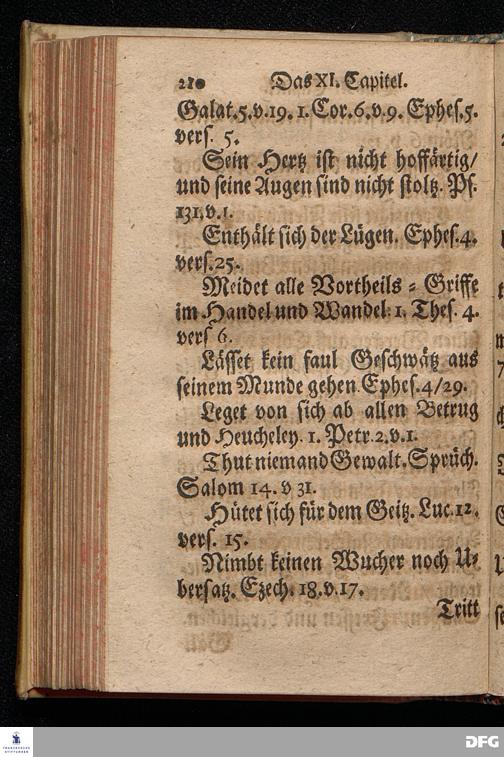 210 Das XI. Capitel.
Galat.5.v.19. 1.Cor.6.v.9. Ephes.5.
vers. 5.
Sein Hertz ist nicht hoffärtig/
und seine Augen sind nicht stoltz. Ps.
131.v.1.
Enthält sich der Lügen. Ephes.4.
vers.25.
Meidet alle Vortheils = Griffe
im Handel und Wandel: 1. Thes. 4.
vers 6.
Lässet kein faul Geschwätz aus
seinem Munde gehen. Ephes.4/29.
Leget von sich ab allen Betrug
und Heucheley. 1. Petr.2.v.1.
Thut niemand Gewalt. Sprüch.
Salom 14. v 31.
Hütet sich für dem Geitz. Luc.12.
vers. 15.
Nimbt keinen Wucher noch U=
bersatz. Ezech. 18.v.17.
Tritt
FRANCKESCHE
STIFTUNGEN
DFG